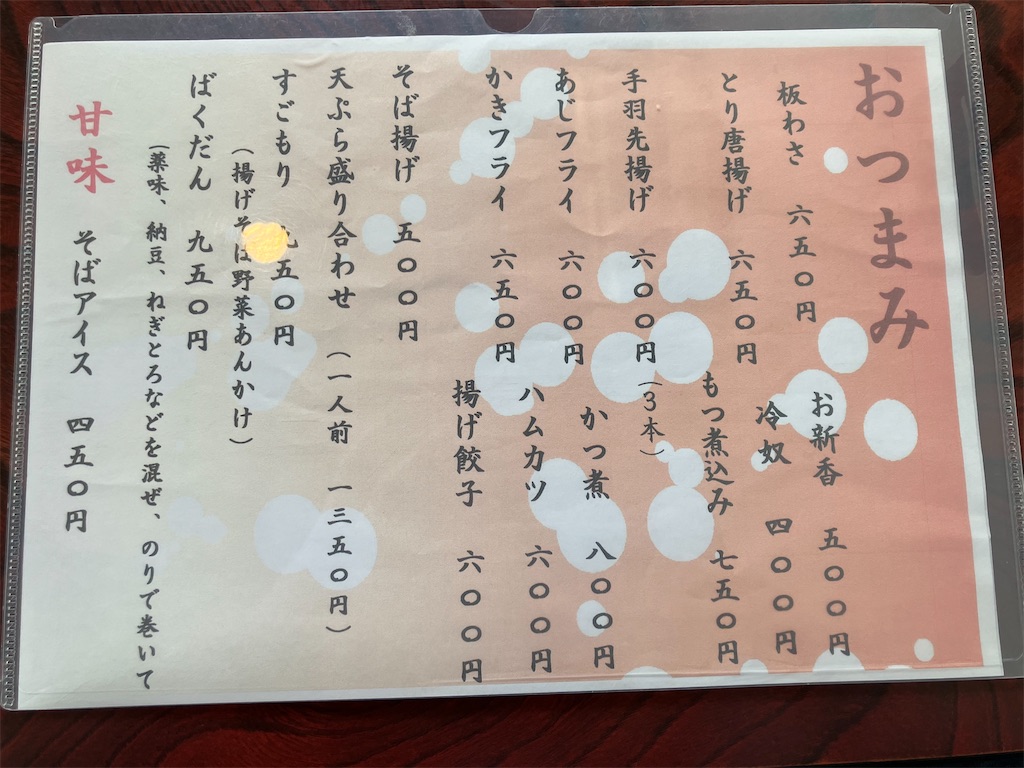 おつまみ
板わさ 六五〇円
お新香 五〇〇円
冷奴 四〇〇円
とり唐揚げ 六五〇円
もつ煮込み 七五〇円
手羽先揚げ 六〇〇円（3本）
かつ煮 八〇〇円
あじフライ 六〇〇円
ハムカツ 六〇〇円
かきフライ 六五〇円
揚げ餃子 六〇〇円
そば揚げ 五〇〇円
天ぷら盛り合わせ （一人前 一三五〇円）
すごもり 五〇円
（揚げそば野菜あんかけ）
ばくだん 九五〇円
（薬味、納豆、ねぎとろなどを混ぜ、のりで巻いて
甘味 そばアイス 四五〇円